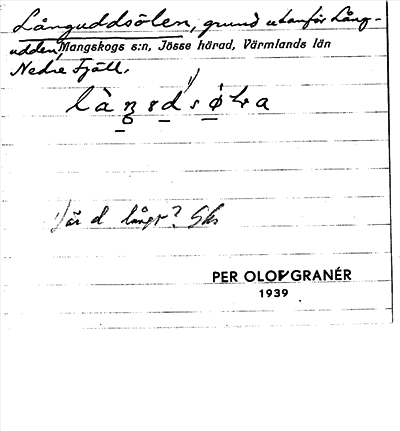 Långuddsölen, grund utanför Lång-
udden, Mangskogs s:n, Jösse härad, Värmlands län
Nedre Fjäll.
1)
1) är d långt? Gks
PER OLOF GRANÉR
1939